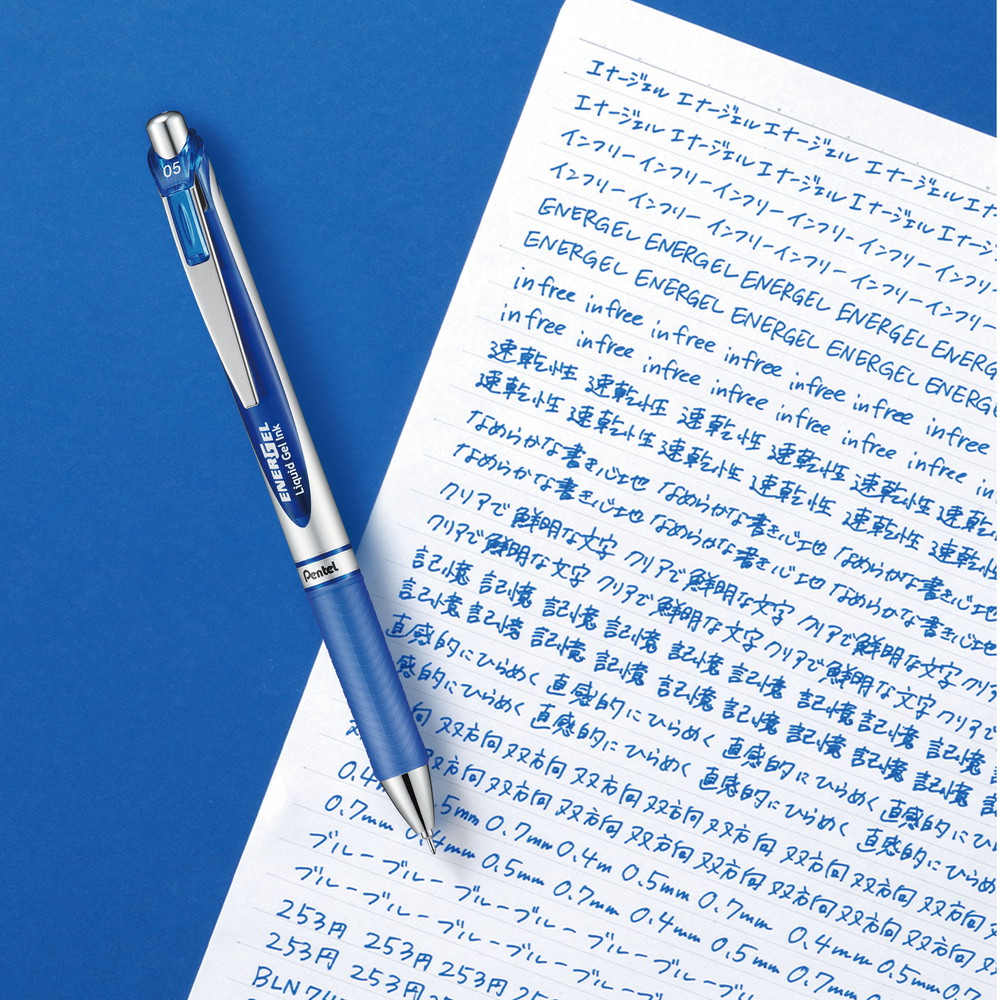 05
ENERGEL
Liquid Gel Ink
Pentel
エナージェル エナージェル エナージェル エナージェル エナ
エナージェル エナージェル エナージェル エナージェル エナージ
インフリー インフリー インフリー インフリー インフリー インフリ
インフリー インフリー インフリー インフリー インフリー インフリー
ENERGEL ENERGEL ENERGEL ENERGEL ENERG
ENERGEL ENERGEL ENERGEL ENERGEL ENERG
infree infree infree infree infree infree infree
infree infree infree infree infree infree in
速乾性 速乾性 速乾性 速乾性 速乾性 速乾
速乾性 速乾性 速乾性 速乾性 速乾性 速乾性
なめらかな書き心地 なめらかな書き心地 なめらかな書き心地
なめらかな書き心地 なめらかな書き心地 なめらかな書き心地
クリアで鮮明な文字 クリアで鮮明な文字 クリアで鮮明な文字 クリア
クリアで鮮明な文字 クリアで鮮明な文字 クリアで鮮明な文字 クリアで
記憶 記憶 記憶 記憶 記憶 記憶 記憶 記憶 記憶
記憶 記憶 記憶 記憶 記憶 記憶 記憶 記憶 記憶
直感的にひらめく 直感的にひらめく 直感的にひらめく 直感的にひ
感的にひらめく 直感的にひらめく 直感的にひらめく 直感的にひらめ
向 双方向 双方向 双方向 双方向 双方向 双方向 双方向
双方向 双方向 双方向 双方向 双方向 双方向 双方向
0.4 .5mm 0.7mm 0.4m 0.5mm 0.7mm 0.4mm 0.5mm 0.7
0.7mm 0.4mm 0.5mm 0.7mm 0.4mm 0.5mm 0.7mm
ブルー ブルー ブルー ブルー ブルー ブルー
ブルー ブルー ブルー ブルー ブルー
253円 253円 253円 253
253円 253円 253円
BLN